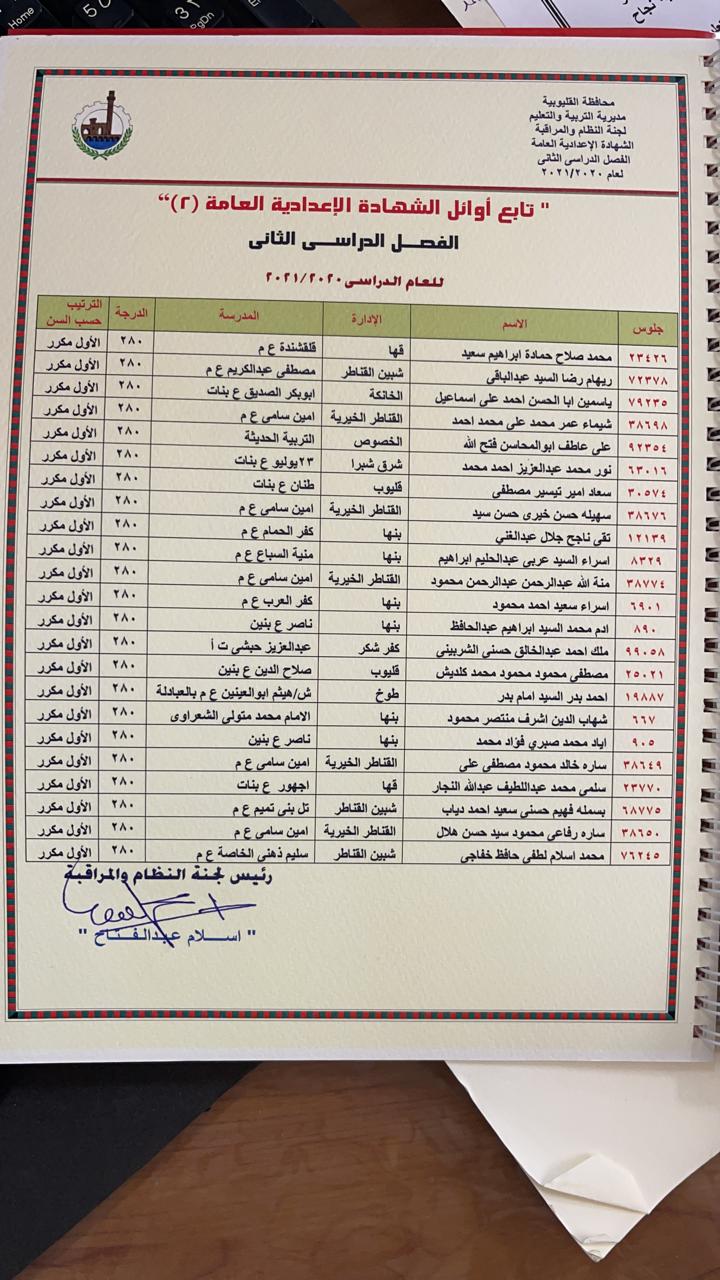 Home
محافظة القليوبية
مديرية التربية والتعليم
لجنة النظام والمراقبة
الشهادة الإعدادية العامة
الفصل الدراسى الثانى
لعام ٢٠٢١/٢٠٢٠
" تابع أوائل الشهادة الإعدادية العامة (٢)"
الفصل الدراسى الثانى
للعام الدراسى ٢٠٢١/٢٠٢٠
جلوس الاسم الإدارة المدرسة الدرجة الترتيب حسب السن
٢٣٤٢٦ محمد صلاح حمادة ابراهيم سعيد قها قلقشندة ع م ٢٨٠ الأول مكرر
٧٢٣٧٨ ريهام رضا السيد عبدالباقى شبين القناطر مصطفى عبدالكريم ع م ٢٨٠ الأول مكرر
٧٩٢٣٥ ياسمين ابا الحسن احمد على اسماعيل الخانكة ابوبكر الصديق ع بنات ٢٨٠ الأول مكرر
٣٨٦٩٨ شيماء عمر محمد على محمد احمد القناطر الخيرية امين سامى ع م ٢٨٠ الأول مكرر
٩٢٣٥٤ على عاطف ابوالمحاسن فتح الله الخصوص التربية الحديثة ٢٨٠ الأول مكرر
٦٣٠١٦ نور محمد عبدالعزيز احمد محمد شرق شبرا ٢٣ يوليو ع بنات ٢٨٠ الأول مكرر
٣٠٥٧٤ سعاد امير تيسير مصطفى قليوب طنان ع بنات ٢٨٠ الأول مكرر
٣٨٦٧٦ سهيله حسن خيرى حسن سيد القناطر الخيرية امين سامى ع م ٢٨٠ الأول مكرر
١٢١٣٩ تقى ناجح جلال عبدالغني بنها كفر الحمام ع م ٢٨٠ الأول مكرر
٨٣٢٩ اسراء السيد عربى عبدالحليم ابراهيم بنها منية السباع ع م ٢٨٠ الأول مكرر
٣٨٧٧٤ منة الله عبدالرحمن عبدالرحمن محمود القناطر الخيرية امين سامى ع م ٢٨٠ الأول مكرر
٦٩٠١ اسراء سعيد احمد محمود بنها كفر العرب ع م ٢٨٠ الأول مكرر
٨٩٠ ادم محمد السيد ابراهيم عبدالحافظ بنها ناصر ع بنين ٢٨٠ الأول مكرر
٩٩٠٥٨ ملك احمد عبدالخالق حسنى الشربينى كفر شكر عبدالعزيز حبشى ت أ ٢٨٠ الأول مكرر
٢٥٠٢١ مصطفى محمود محمود محمد كلديش قليوب صلاح الدين ع بنين ٢٨٠ الأول مكرر
١٩٨٨٧ احمد بدر السيد امام بدر طوخ ش/هيثم ابوالعينين ع م بالعبادلة ٢٨٠ الأول مكرر
٦٦٧ شهاب الدين اشرف منتصر محمود بنها الامام محمد متولى الشعراوى ٢٨٠ الأول مكرر
٩٠٥ اياد محمد صبري فؤاد محمد بنها ناصر ع بنين ٢٨٠ الأول مكرر
٣٨٦٤٩ ساره خالد محمود مصطفى على القناطر الخيرية امين سامى ع م ٢٨٠ الأول مكرر
٢٣٧٧٠ سلمى محمد عبداللطيف عبدالله النجار قها اجهور ع بنات ٢٨٠ الأول مكرر
٦٨٧٧٥ بسمله فهيم حسنى سعيد احمد دياب شبين القناطر تل بنى تميم ع م ٢٨٠ الأول مكرر
٣٨٦٥٠ ساره رفاعى محمود سيد حسن هلال القناطر الخيرية امين سامى ع م ٢٨٠ الأول مكرر
٧٦٢٤٥ محمد اسلام لطفى حافظ خفاجى شبين القناطر سليم ذهنى الخاصة ع م ٢٨٠ الأول مكرر
رئيس لجنة النظام والمراقبة
" اسلام عبدالفتاح "